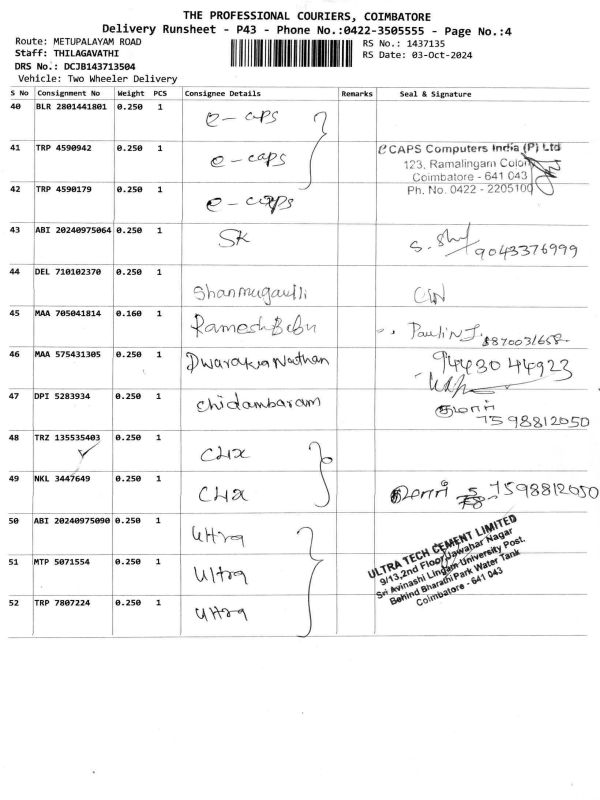 THE PROFESSIONAL COURIERS, COIMBATORE
Delivery Runsheet - P43 - Phone No.:0422-3505555 - Page No.:4
Route: METUPALAYAM ROAD
RS No.: 1437135
Staff: THILAGAVATHI
RS Date: 03-Oct-2024
DRS No.: DCJB143713504
Vehicle: Two Wheeler Delivery
S No Consignment No Weight PCS Consignee Details Remarks Seal & Signature
40 BLR 2801441801 0.250 1 e-caps
41 TRP 4590942 0.250 1 e-caps
eCAPS Computers India (P) Ltd
123, Ramalingam Colony
Coimbatore - 641 043
Ph. No. 0422 - 2205100
42 TRP 4590179 0.250 1 e-caps
43 ABI 20240975064 0.250 1 SK 9043376999
44 DEL 710102370 0.250 1
45 MAA 705041814 0.160 1 Ramesh Babu Paulin J. 8870031658
46 MAA 575431305 0.250 1 Dwarakanathan 9443044923
47 DPI 5283934 0.250 1 chidambaram 7598812050
48 TRZ 135535403 0.250 1
49 NKL 3447649 0.250 1 7598812050
50 ABI 20240975090 0.250 1 Ultra
51 MTP 5071554 0.250 1 Ultra
52 TRP 7807224 0.250 1 Ultra
ULTRA TECH CEMENT LIMITED
9/13,2nd Floor,Jawahar Nagar
Sri Avinashi Lingam University Post.
Behind Bharathi Park Water Tank
Coimbatore - 641 043